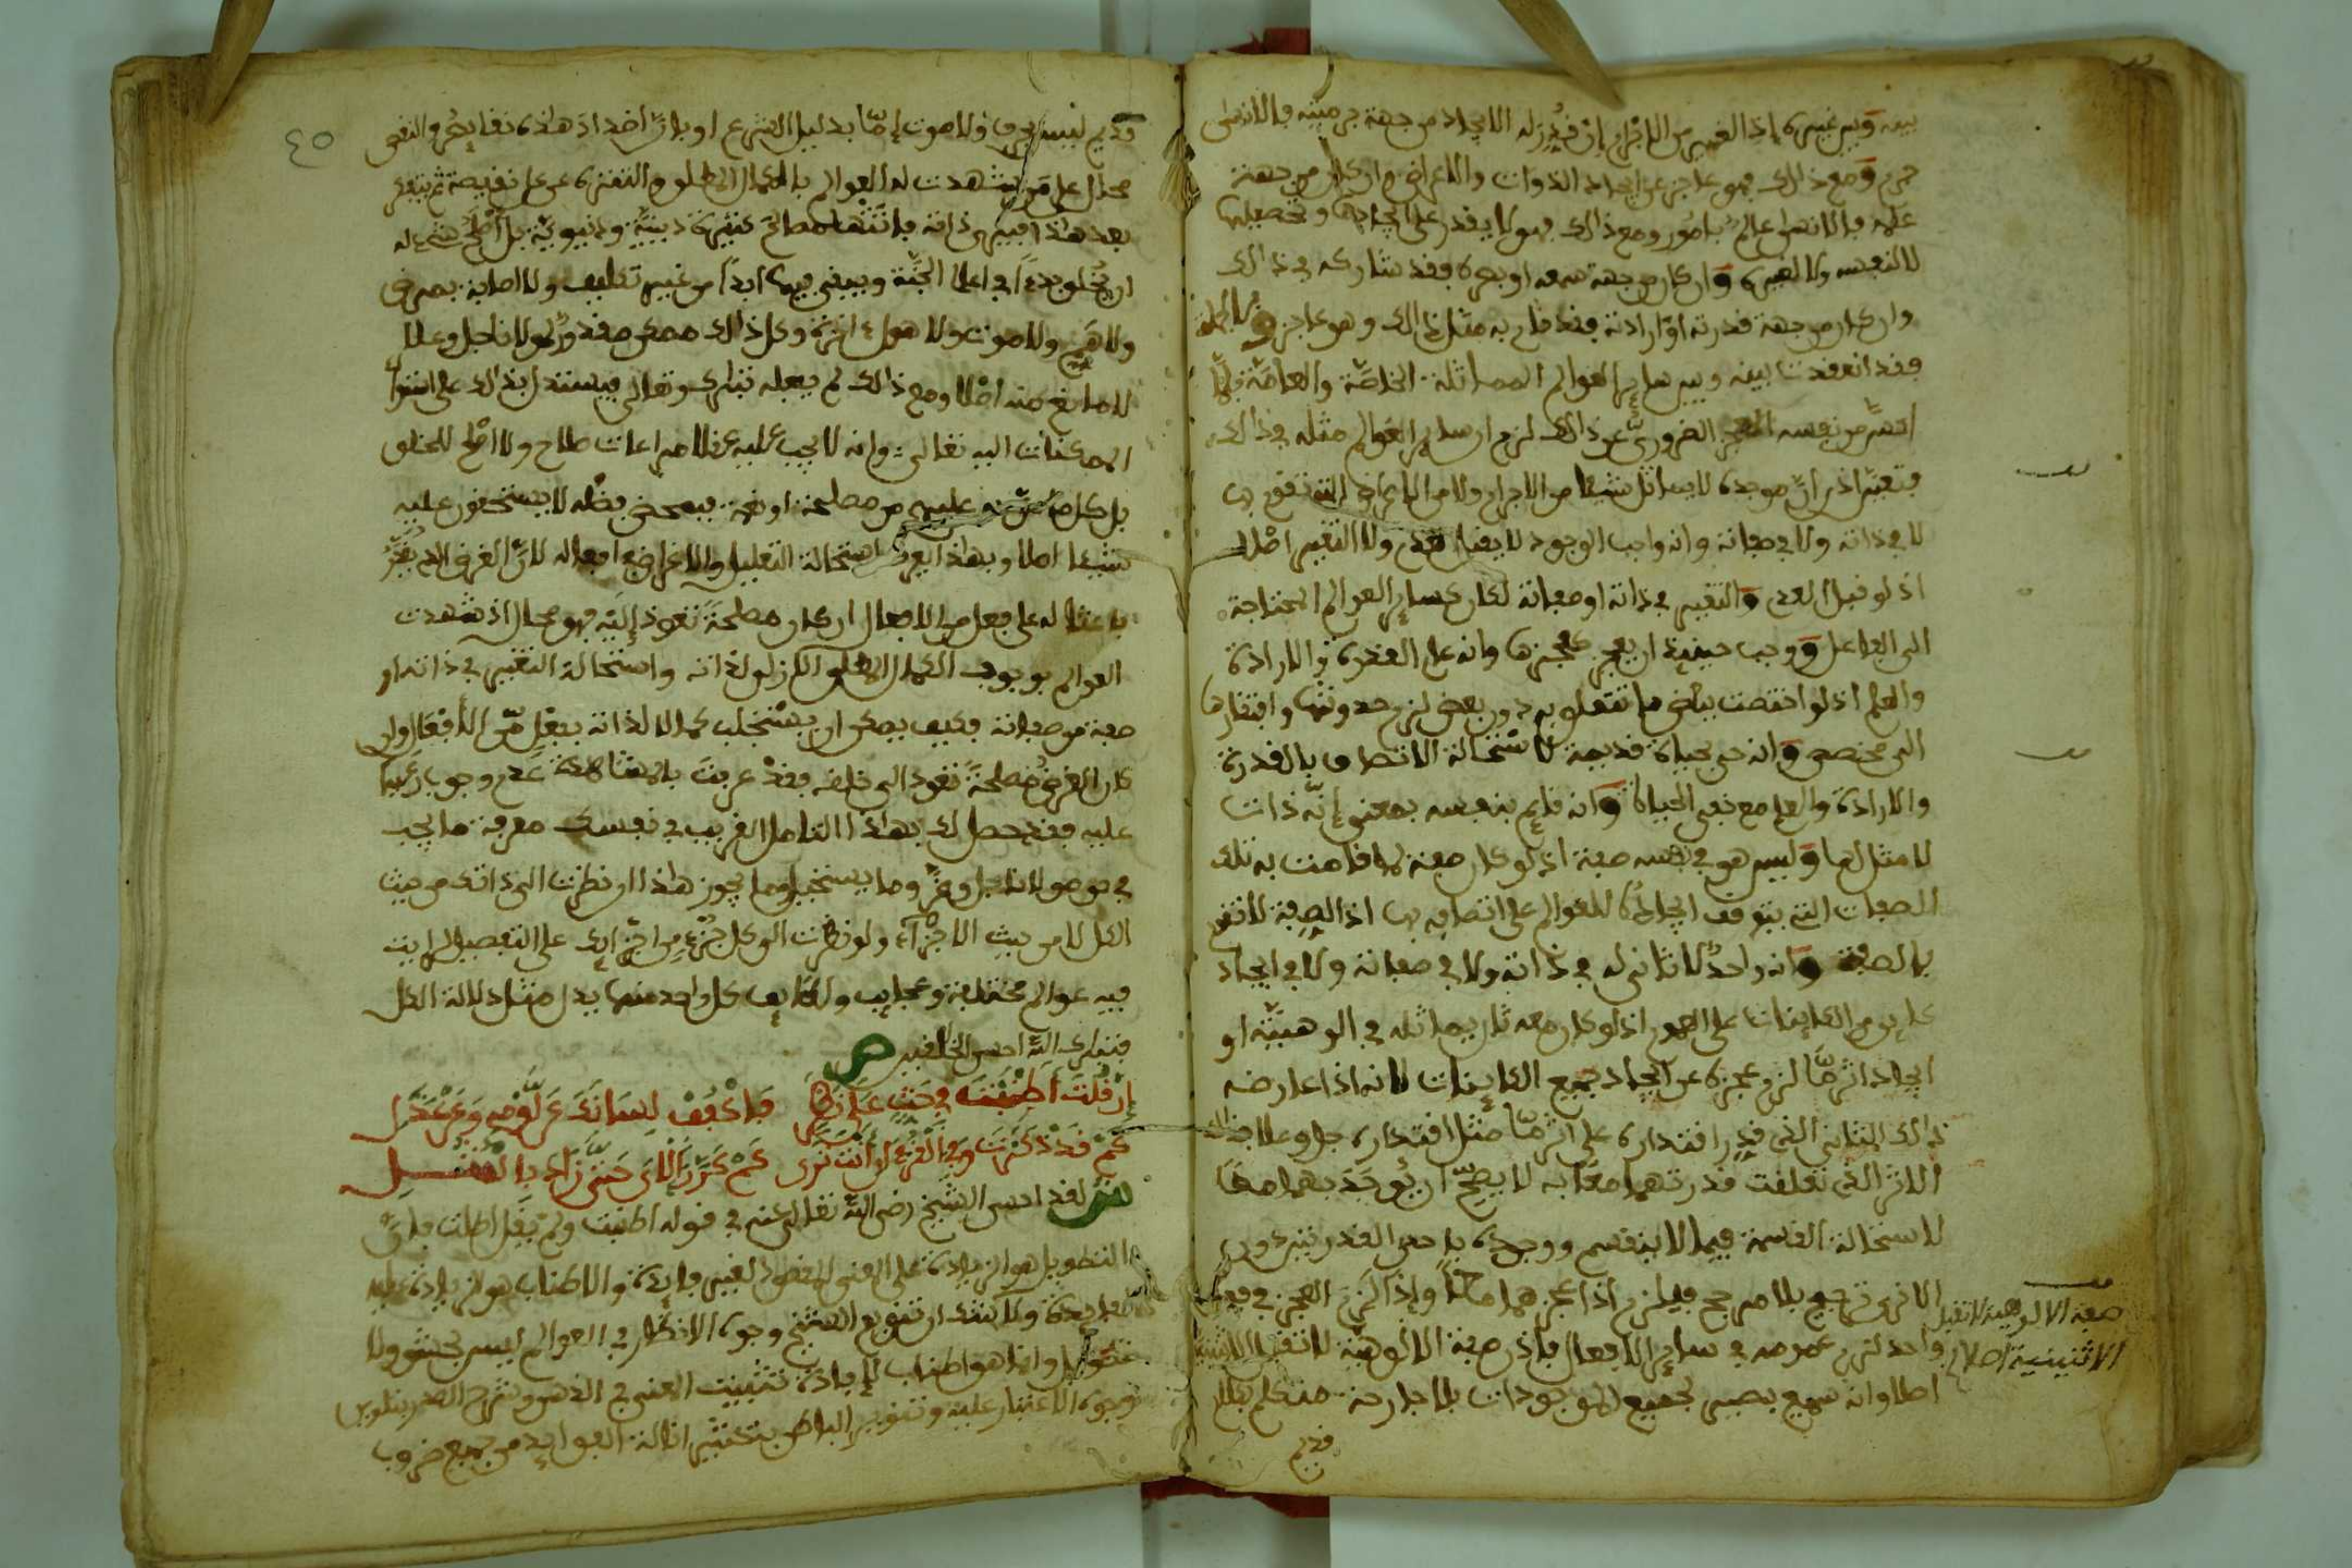 بينه وبين غيره إذ الغير من الأجرام إن قدر له الايجاد من جهة جرميته فالانسان
جرم ومع ذلك فهو عاجز عن ايجاد الذوات والاعراض وان كان من جهة
علمه فالانسان عالم بامور ومع ذلك فهو لا يقدر على ايجادها وتحصيلها
لا لنفسه ولا لغيره وان كان من جهة سمعه او بصره فقد شاركه في ذلك
وان كان من جهة قدرته او ارادته فقد قام به مثل ذلك وهو عاجز وبالجملة
فقد انعقدت بينه وبين ساير العوالم المماثلة الخاصة والعامة فلما
من نفسه العجز الضروري عن ذلك لزم ان ساير العوالم مثله في ذلك
فتعين اذن ان موجده لا يماثل شيئا من الاجرام ولا من الاعراض التي تقوم بها
لا في ذاته ولا في صفاته وانه واجب الوجود لا يقبل العدم ولا التغير اصلا
اذ لو قبل العدم والتغير في ذاته او صفاته لكان كساير العوالم المحتاجة
الى الفاعل ووجب حينئذ ان يعجز كعجزها وانه عام القدرة والارادة
والعلم اذ لو اختصت ببعض ما تتعلق به دون بعض لزم حدوثها وافتقارها
الى مخصص وانه حي بحياة قديمة لاستحالة الاتصاف بالقدرة
والارادة والعلم مع نفي الحياة وانه قايم بنفسه بمعنى إنه ذات
لا مثل لها وليس هو في نفسه صفة اذ لو كان صفة لما قامت به تلك
الصفات التي يتوقف ايجاده للعوالم على اتصافه بها اذ الصفة لا تقوم
بالصفة وانه واحد لا ثاني له في ذاته ولا في صفاته ولا في ايجاد
كاين من الكاينات على العموم اذ لو كان معه ثان يماثله في الوهيته او
ايجاد اثر ما لزم عجزه عن ايجاد جميع الكاينات لانه اذا عارضه
ذلك الثاني الذي قدر اقتداره على اثر ما مثل اقتداره جل وعلا فذلك
الاثر الذي تعلقت قدرتهما معا به لا يصح ان يوجد بهما معا
لاستحالة القسمة فيما لا ينقسم ووجوده باحدى القدرتين دون
الاخرى ترجيح بلا مرجح فيلزم اذا عجزهما معا وإذا لزم العجز في فعل
واحد لزم عمومه في ساير الافعال فاذن صفة الالوهية لا تقبل الاثنينية
اصلا وانه سميع بصير لجميع الموجودات بلا جارحة متكلم بكلام
صفة الالوهية لا تقبل
الاثنينية اصلا
قديم
٤٥
قديم ليس بحرف ولا صوت إما بدليل الشرع او بان اضداد هذه نقايص والنقص
محال على من شهدت له العوالم بالكمال المطلق والتنزه عن كل نقيصة ثم ينظر
بعد هذا في ذاته مصالح كثيرة دينية ودنيوية بل
ان يخلق بدءا في اعلا الجنة ويبقى فيها ابدا من غير تكليف ولا اصابة بمرض
ولا هم ولا موت ولا هول اخرة وكل ذلك ممكن مقدور لمولانا جل وعلا
لا مانع منه اصلا ومع ذلك لم يفعله تبارك وتعالى فيستدل بذلك على استوا
الممكنات اليه تعالى وانه لا يجب عليه عقلا مراعات صلاح ولا اصلح للخلق
بل كل ما من به عليهم من مصلحة او نعمة فبمحض فضله لا يستحقون عليه
شيئا اصلا وبهذا يعرف استحالة التعليل والاغراض في افعاله لان الغرض الذي يقدر
باعثا له على فعل من الافعال ان كان مصلحة تعود إليه فهو محال اذ شهدت
العوالم بوجوب الكمال المطلق الازلي لذاته واستحالة التغير في ذاته او
صفة من صفاته فكيف يصح ان يستجلب كمالا لذاته بفعل من الأفعال وان
كان الغرض مصلحة تعود الى خلقه فقد عرفت بالمشاهدة عدم وجوب رعيها
عليه فقد حصل لك بهذا التامل القريب في نفسك معرفة ما يجب
في حق مولانا جل وعز وما يستحيل وما يجوز هذا ان نظرت الى ذاتك من حيث
الكل لا من حيث الاجزاء ولو نظرت الى كل جزء من اجزائك على التفصيل لرايت
فيه عوالم مختلفة وعجايب ولطايف كل واحد منها يدل مثل دلالة الكل
فتبارك الله احسن الخالقين ص
إن قلت أطنبت في حث على نظر فاكفف لسانك عن لوم وعن عذل
كم قد ذكرت وفي القرءان أنت ترى كم كرر الآي حتى زاد بالمثل
ش لقد احسن الشيخ رضي الله تعالى عنه في قوله اطنبت ولم يقل اطلت فان
التطويل هو الزيادة على المعنى المقصود لغير فايدة والاطناب هو الزيادة عليه
لفايدة ولا شك ان تنويع الشيخ وجوه الانظار في العوالم ليس بحشو ولا
تطويل وانما هو اطناب لإفادة تثبيت المعنى في الذهن وشرح الصدر بتلوين
وجوه الاعتبار عليه وتنوير الباطن بتكثير ادلة الفوايد من جميع ضروب